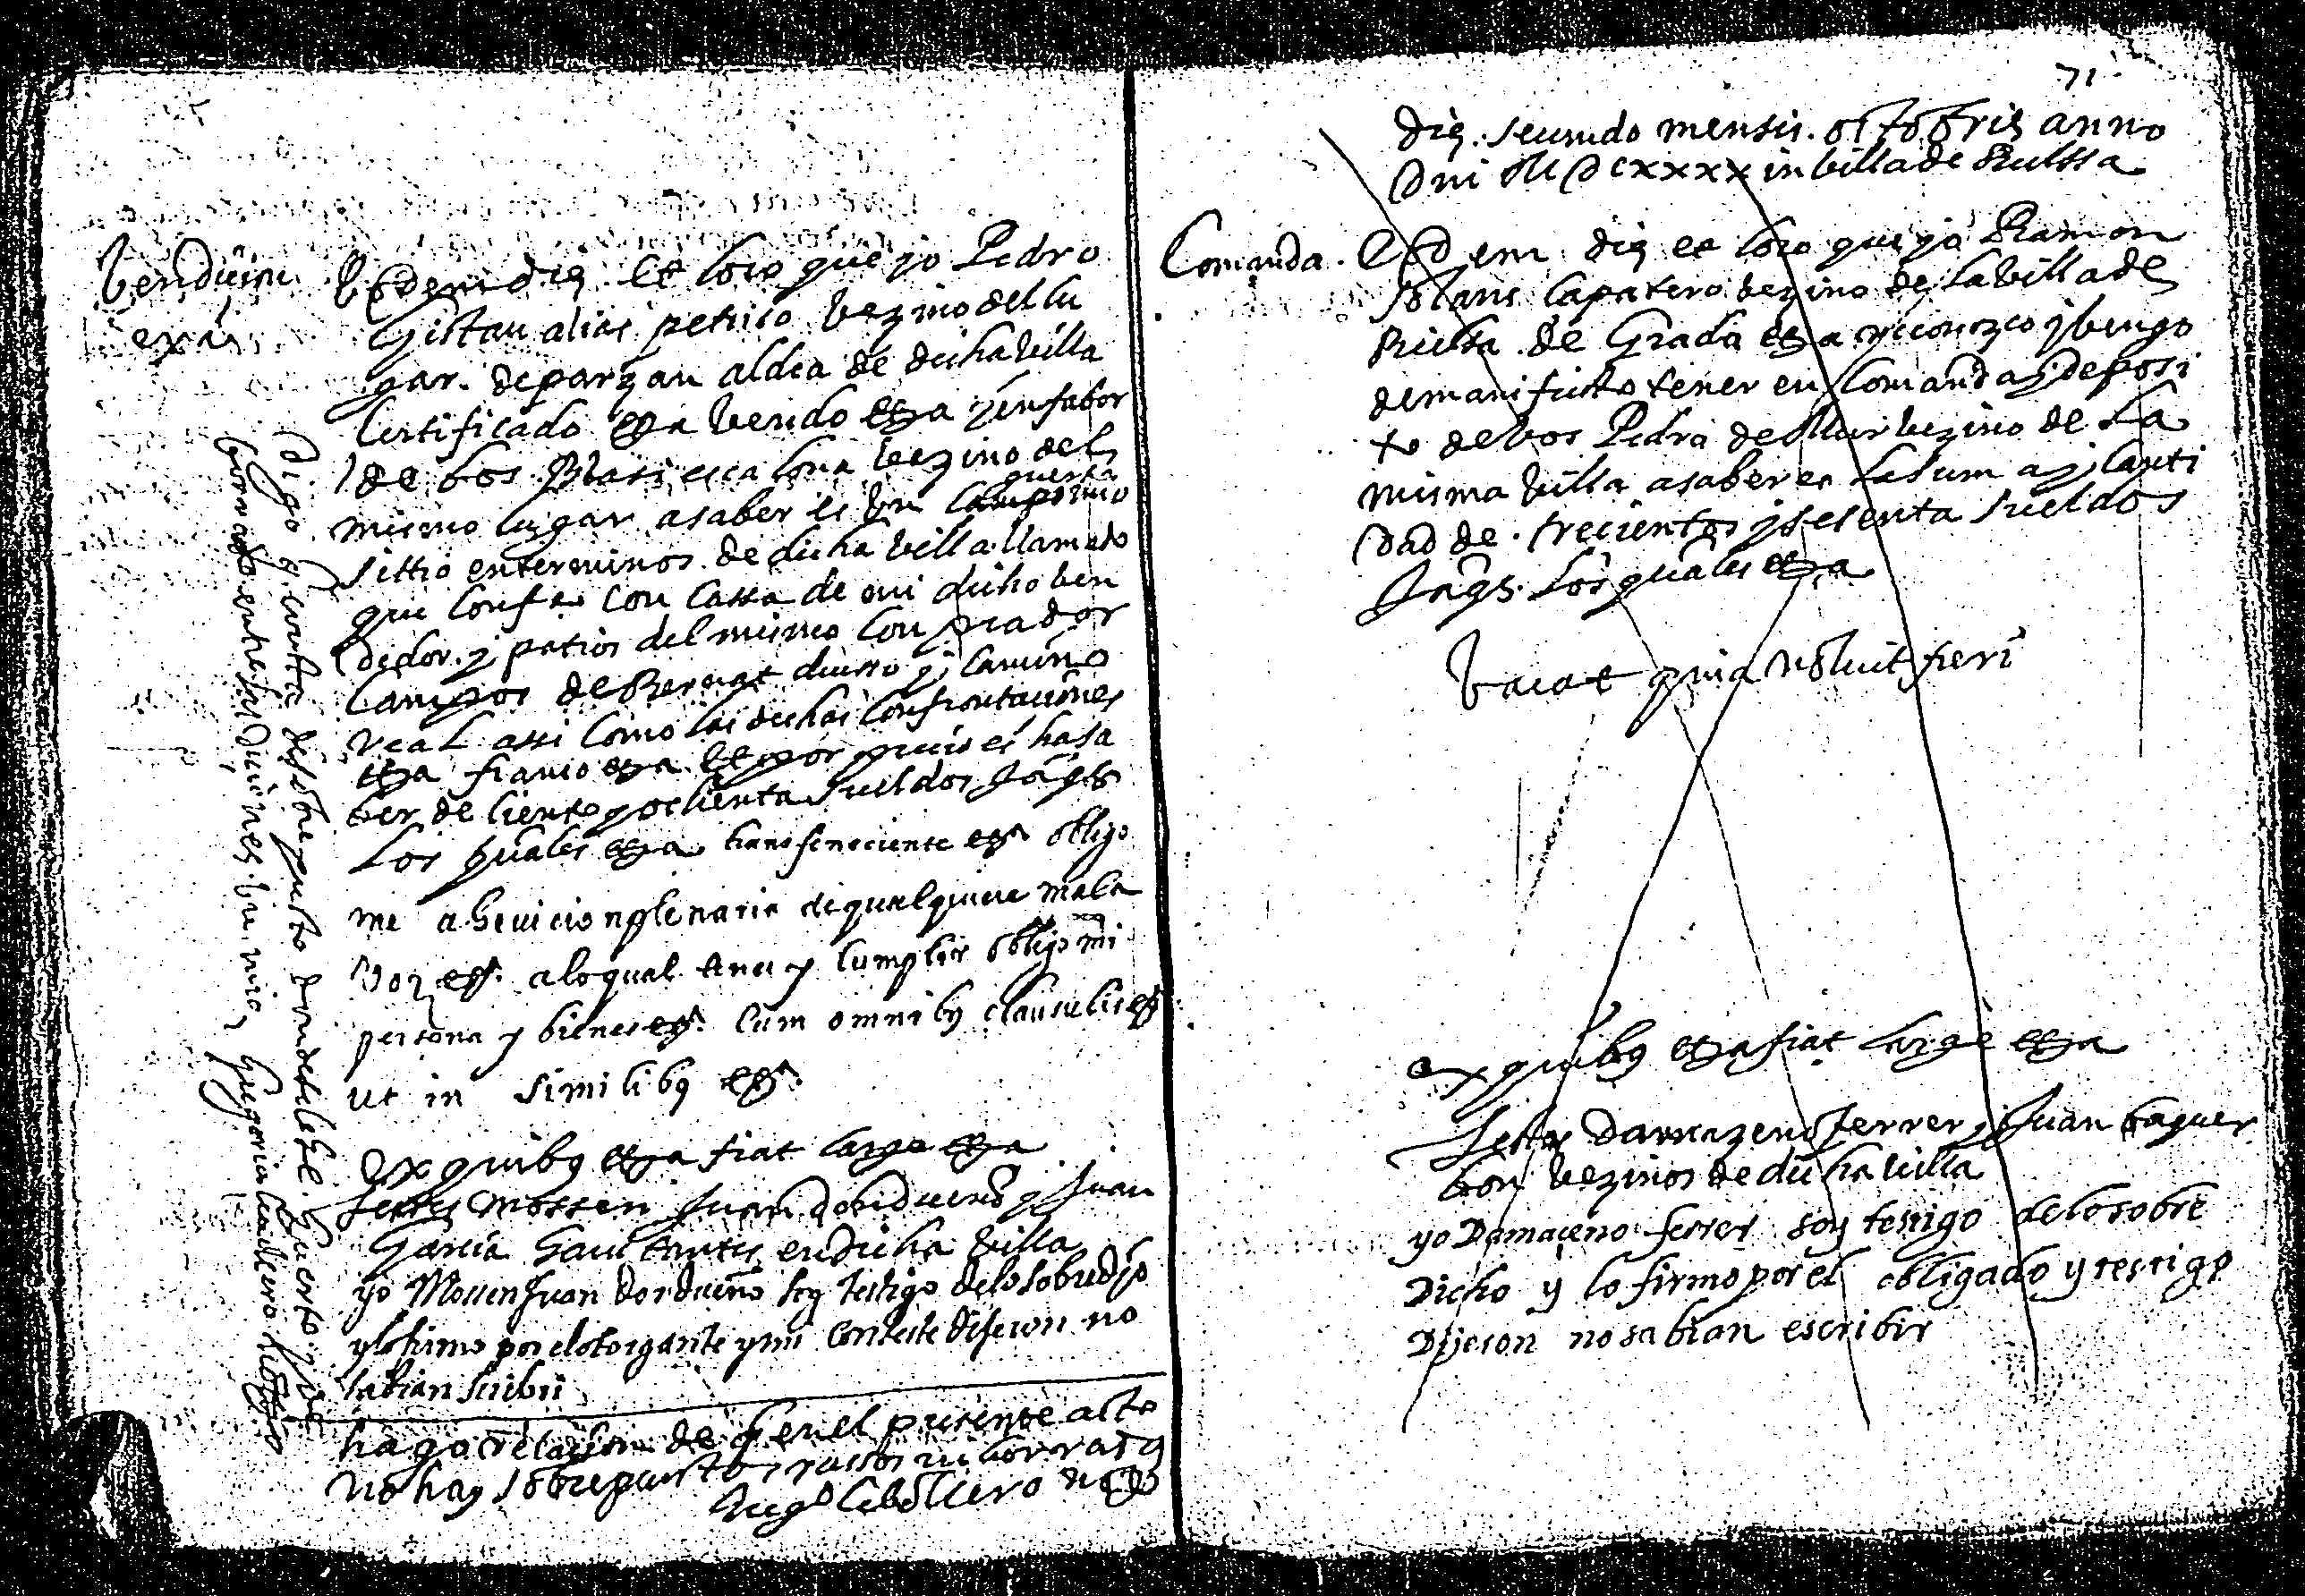 Vendicion
exa.
Eodem die et loco que yo Pedro
Gistau alias petrico vezino del lu
gar de parzan aldea de dicha villa
Certificado etza vendo etza y en fabor
de bos Blasi escalona vezino del
mismo lugar asaber es un huerto campo mio
sittio enterminos de dicha villa llamado
que confta con cassa de mi dicho ven
dedor y patios del mismo conprador
campos de Bernat y camino
real assi como las dichas confrontaciones
etza franco etza et por precio es hasa
ber de ciento y ochenta sueldos Jaqs
Los quales etza transferesciente etza obligo
me a Eviccion plenaria de qualquiere mala
voz etz. alo qual tener y cumplir obligo mi
persona y bienes etz. Cum omnibus clausulis etz
ut in similibus etz.
Ex quibus etza fiat large etza
Testes Mossen Juan dordueño y Juan
Garcia havitantes en dicha villa
yo Mossen Juan dordueño soy testigo delo sobredho
y lo firmo por el otorgante y mi conteste dixeron no
sabian scribir
hago relacion de q en el presente acto
no hay sobrepuesto rasso ni borrado
Gregº Cavallero notº
Digo q consta de sobrepuesto donde se lehe. huerto. y de
borrado entre las diciones. un. mio, Gregorio Cavallero notº
71
Die. secundo mensis. octobris anno
Dni M DC xxxx in villa de Bielssa
Comanda. Eodem die et loco que yo Ramon
Solans Çapatero vezino de la villa de
Bielsa de Grado etza reconozco y bengo
de manifiesto tener en Comanda y deposi
to de vos Pedro de Mur vezino de La
misma villa asaber es la suma y canti
dad de trecientos y sesenta sueldos
Jaqs. los quales etza
Vacat quia noluit fieri
ex quibus etza fiat large etza
Testes Damazeno ferrer y Juan baguer
bon vezinos de dicha villa
yo Damaceno ferrer soy testigo de lo sobre
Dicho y lo firmo por el obligado y testigo
Dijeron no sabian escribir